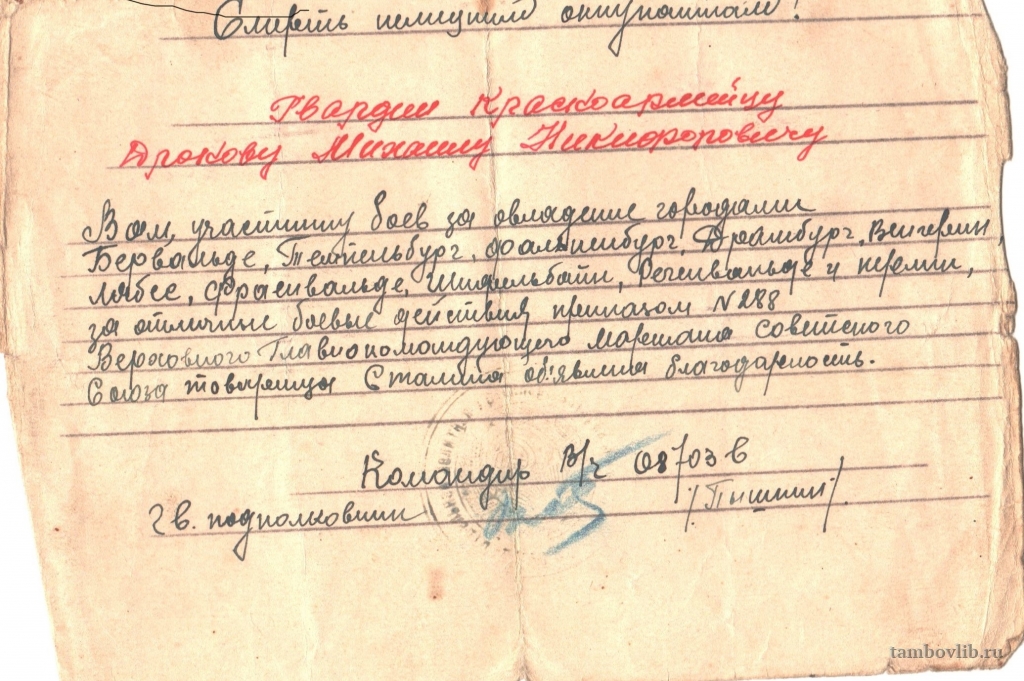 Смерть немецким оккупантам!
Гвардии Красноармейцу
Дрокову Михаилу Никифоровичу
Вам, участнику боев за овладение городами
Бервальде, Темпельбург, Фалькенбург, Драмбург, Венгерин,
Лябес, Фраенвальде, Шифельбайн, Регенвальде и
за отличные боевые действия приказом N 288
Верховного Главнокомандующего Маршала Советского
Союза товарища Сталина об'явлена благодарность.
Командир В/ч 08703 в
Гв. подполковник /Пышнин/
tambovlib.ru